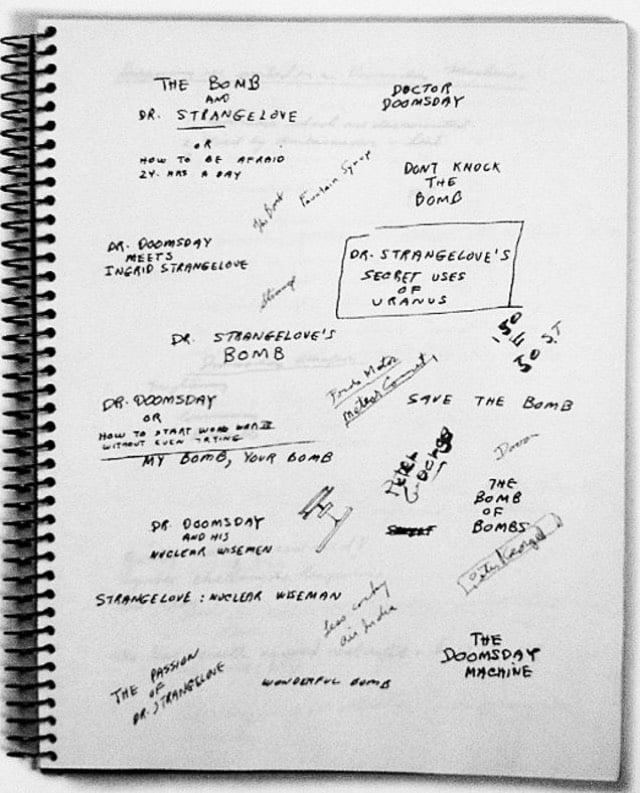 THE BOMB
AND
DR. STRANGELOVE
OR
HOW TO BE AFRAID
24. HRS A DAY
DOCTOR
DOOMSDAY
DONT KNOCK
THE
BOMB
The Bomb
Fountain
DR. DOOMSDAY
MEETS
INGRID STRANGELOVE
DR. STRANGELOVE'S
SECRET USES
OF
URANUS
Strange
DR. STRANGELOVE'S
BOMB
SAVE THE BOMB
DR. DOOMSDAY
OR
HOW TO START WORLD WAR III
WITHOUT EVEN TRYING
MY BOMB, YOUR BOMB
Peter
George
THE
BOMB
OF
BOMBS
DR. DOOMSDAY
AND HIS
NUCLEAR WISEMEN
Peter George
STRANGELOVE : NUCLEAR WISEMAN
air India
THE PASSION
OF
DR. STRANGELOVE
WONDERFUL BOMB
THE
DOOMSDAY
MACHINE